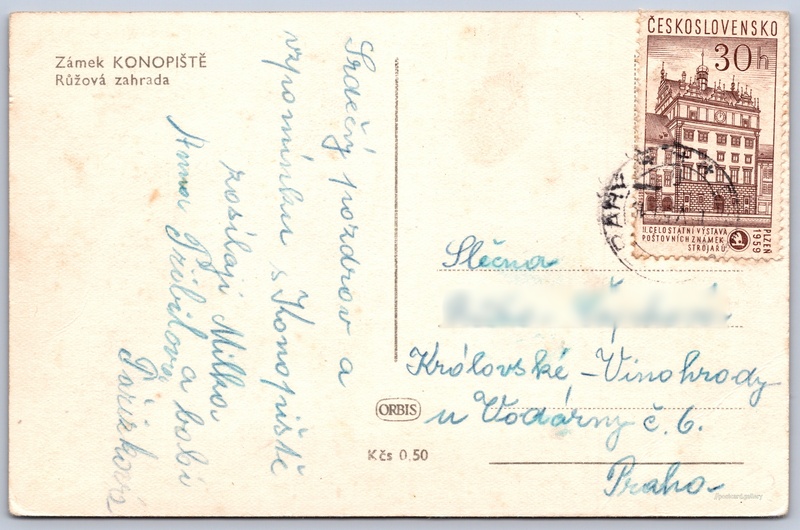 Zámek KONOPIŠTĚ
Růžová zahrada
Srdečný pozdrov a
vzpomínku s Konopiště
zasílají Milka
Anna Přibilová a babi
Pařízková
ORBIS
Kčs 0.50
ČESKOSLOVENSKO
30h
II. CELOSTÁTNÍ VÝSTAVA
POŠTOVNÍCH ZNÁMEK
STROJAŘŮ
PLZEŇ
1959
Slečna
Královské - Vinohrody
u Vodárny č. 6.
Praha